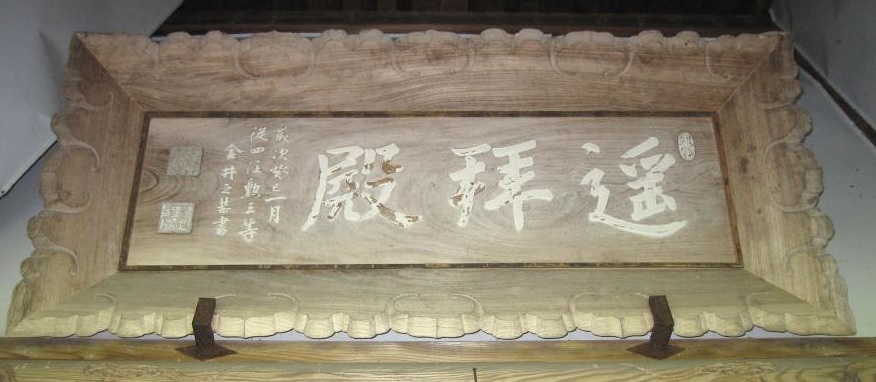 遥拝殿
歳次癸巳一月
従四位勲三等
金井之恭書